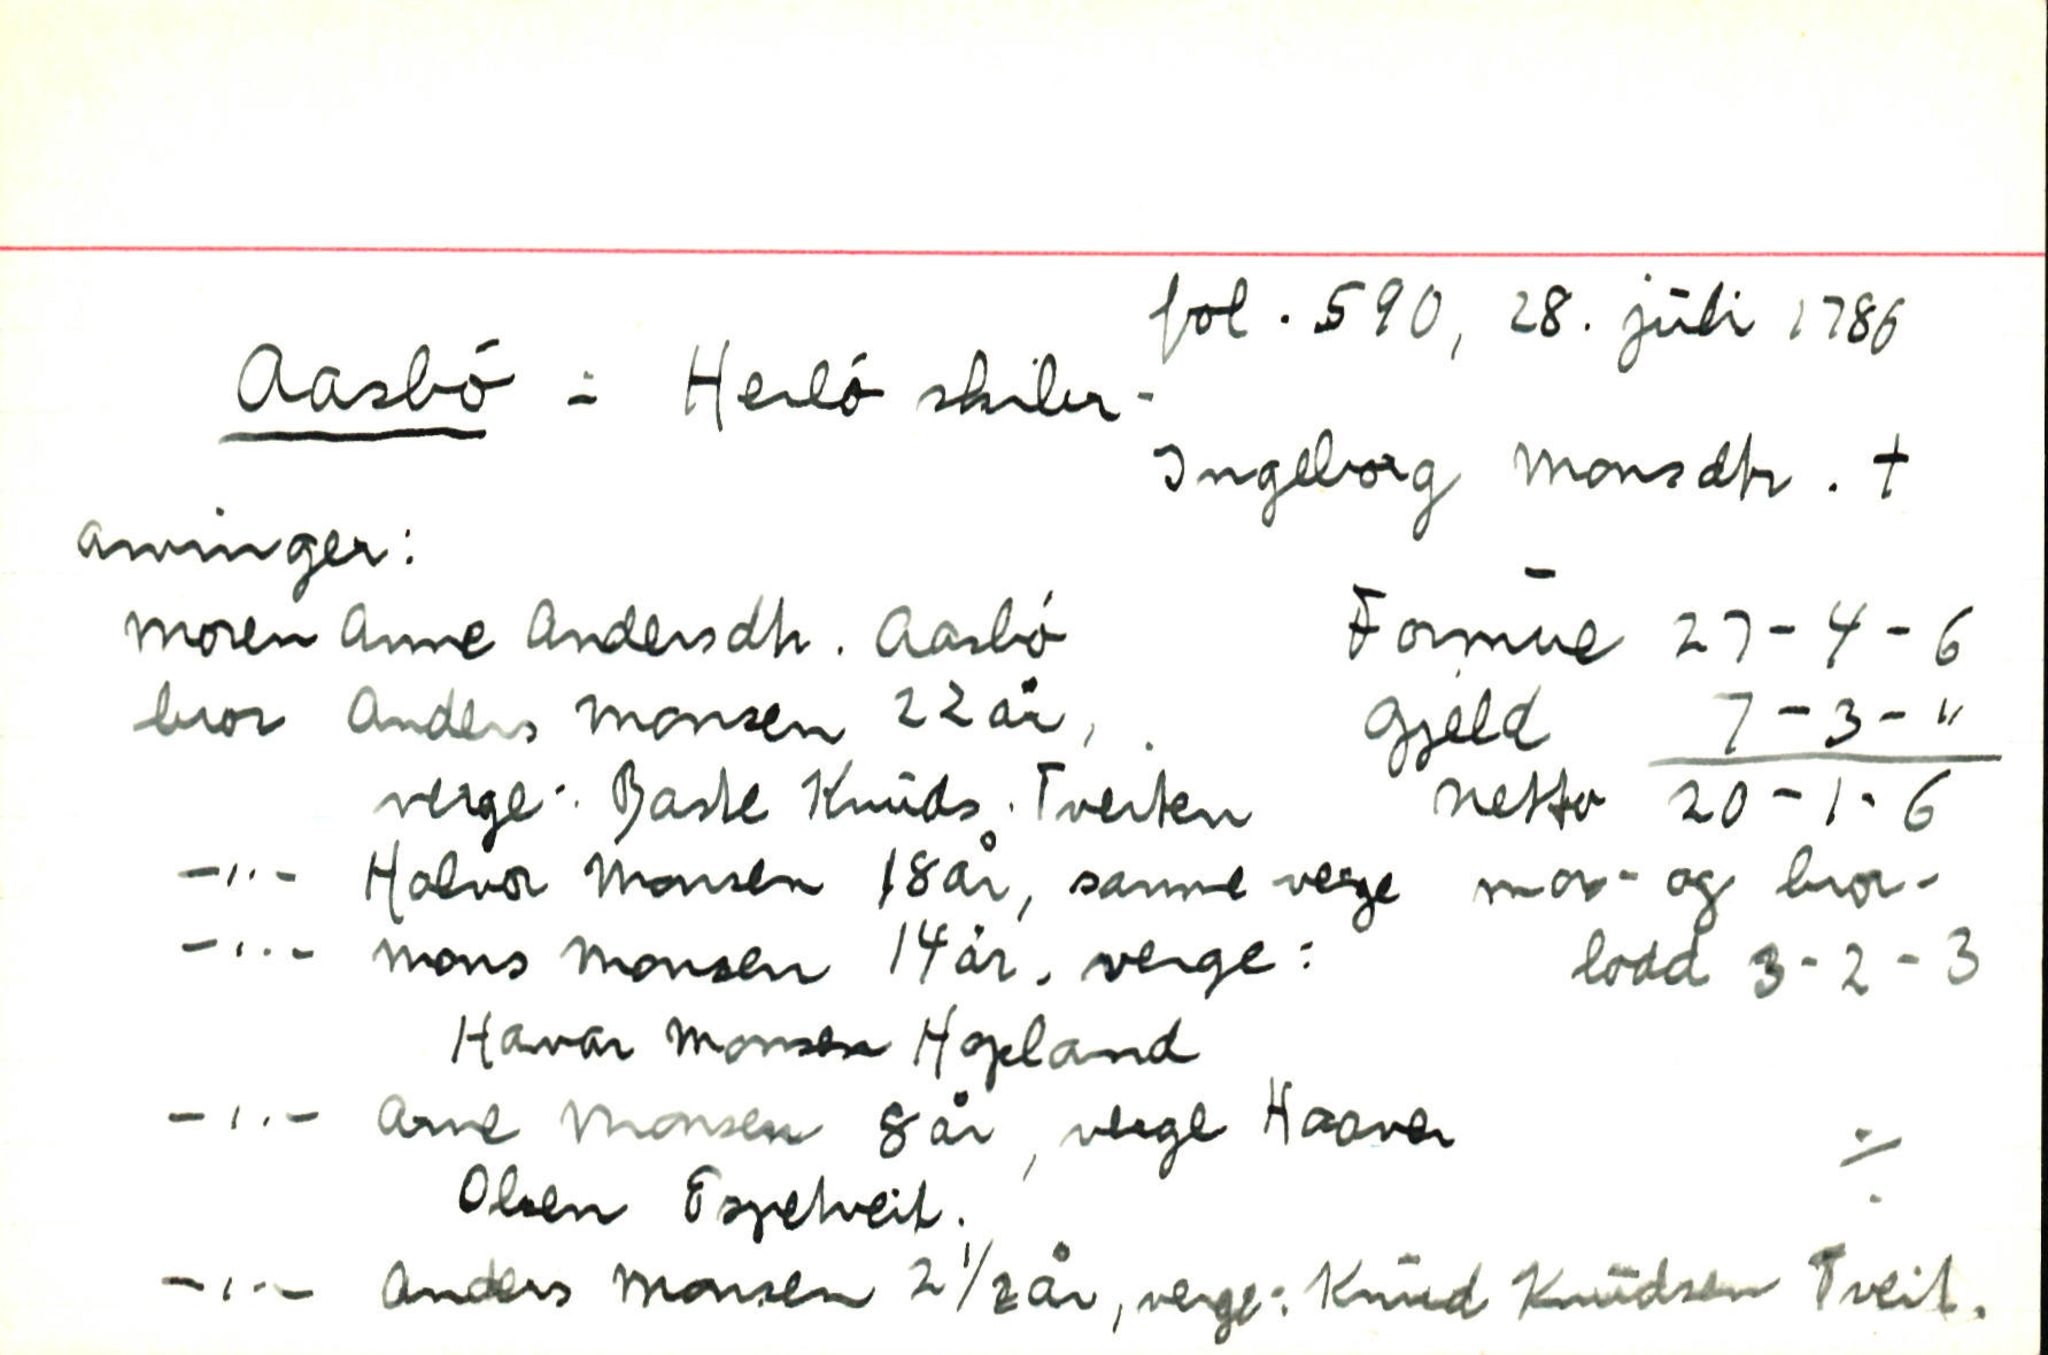 fol. 590, 28. juli 1786
Aasbó - Herló skibr-
Ingeborg Monsdtr. †
arvinger:
Moren Anne Andersdtr. Aasbó Formue 27-4-6
bror Anders Monsen 22 år, Gjeld 7-3-"
verge: Baste Knuds. Tveiten Netto 20-1-6
-"- Halvor Monsen 18 år, samme verge mor- og bror-
-"- Mons Monsen 14 år. verge: lodd 3-2-3
Havar Monsen Hopland
-"- Arne Monsen 8 år, verge Haaver
Olsen Espetveit.
-"- Anders Monsen 2 1/2 år, verge: Knud Knudsen Tveit.